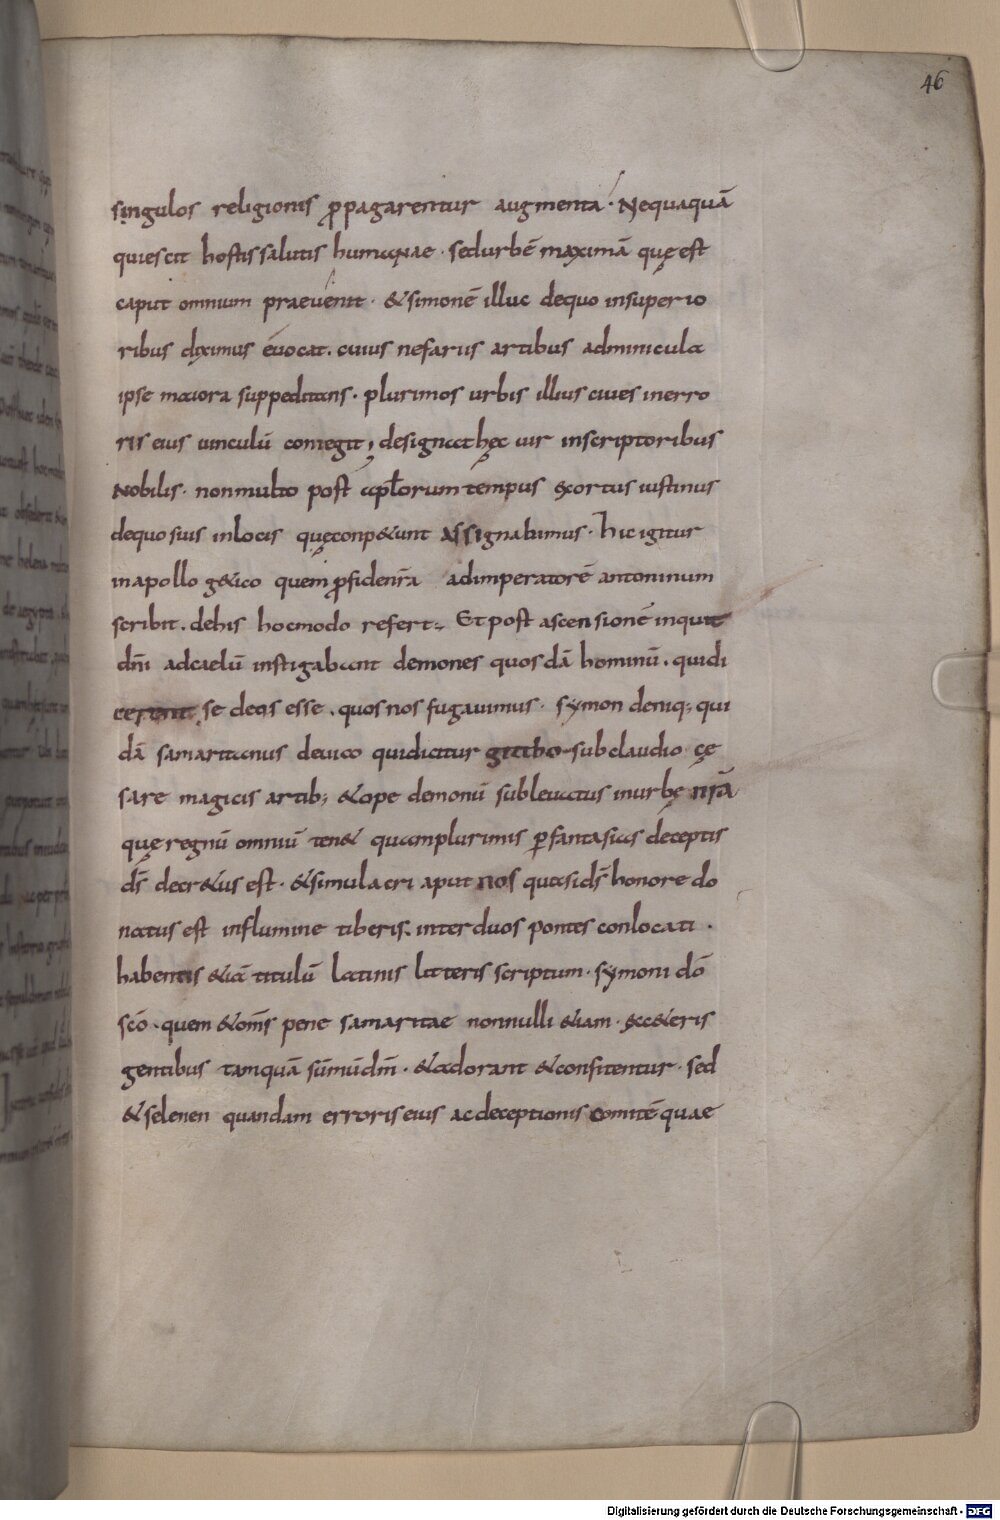 46
singulos religionis ꝓpagarentur augmenta · Nequaquā
quiescit hostis salutis humanae · sed urbē maximā quę est
caput omnium praevenit · & simonē illuc de quo in superio
ribus diximus evocat . cuius nefariis artibus adminicula
ipse maiora suppeditans · plurimos urbis illius cives in erro
ris eius vinculū coniegit ; designat hęc vir in scriptoribus
Nobilis · non multo post aplorum tempus exortus iustinus
de quo suis in locis quę conp&unt assignabimus · hic igitur
in apollog&ico quem pro fide nr̄a ad imperatorē antoninum
scribit . de his hoc modo refert ; Et post ascensionē inquit
dn̄i ad caelū instigabant demones quosdā hominū . qui di
cerent se deos esse . quos nos fugavimus · symon deniq; qui
dā samaritanus de vico qui dicitur gittho sub claudio cę
sare magicis artib; & ope demonū sublevatus in urbe nr̄ā
quę regnū omniū ten& quam plurimis ꝑ fantasias deceptis
ds̄ decr&us est · & simulacri aput nos quasi ds̄ honore do
natus est in flumine tiberis . inter duos pontes conlocati ·
habentis &iā titulū latinis litteris scriptum · symoni dō
scō · quem & om̄s pene samaritae nonnulli &iam · ex c&eris
gentibus tamquā sūmū dm̄ · & adorant & confitentur · sed
& selenen quandam erroris eius ac deceptionis comitē quae
Digitalisierung gefördert durch die Deutsche Forschungsgemeinschaft - DFG